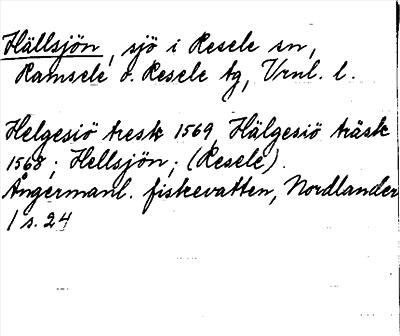 Hällsjön, sjö i Resele sn,
Ramsele o. Resele tg, Vrnl. l.
Helgesiö tresk 1569, Hälgesiö träsk
1568; Hellsjön; (Resele).
Ångermanl. fiskevatten, Nordlander
1 s. 24